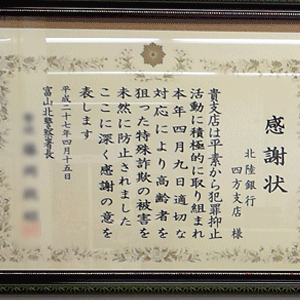 感謝状
北陸銀行
四方支店 様
貴支店は平素から犯罪抑止
活動に積極的に取り組まれ
本年四月九日適切な
対応により高齢者を
狙った特殊詐欺の被害を
未然に防止されました
ここに深く感謝の意を
表します
平成二十七年四月十五日
富山北警察署長